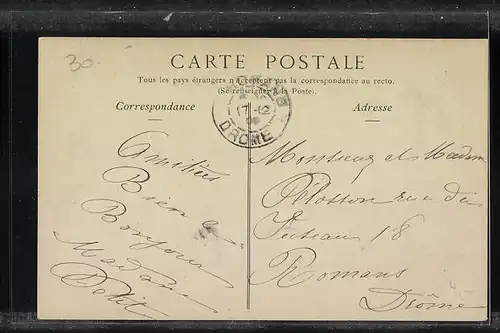 30
CARTE POSTALE
Tous les pays étrangers n'acceptent pas la correspondance au recto.
(Se renseigner à la Poste).
Correspondance
Adresse
17-12
DROME
Amitiés
Bien le
Bonjour
Madame
Petit
Monsieur et Madame
rue du
18
Romans
Drôme